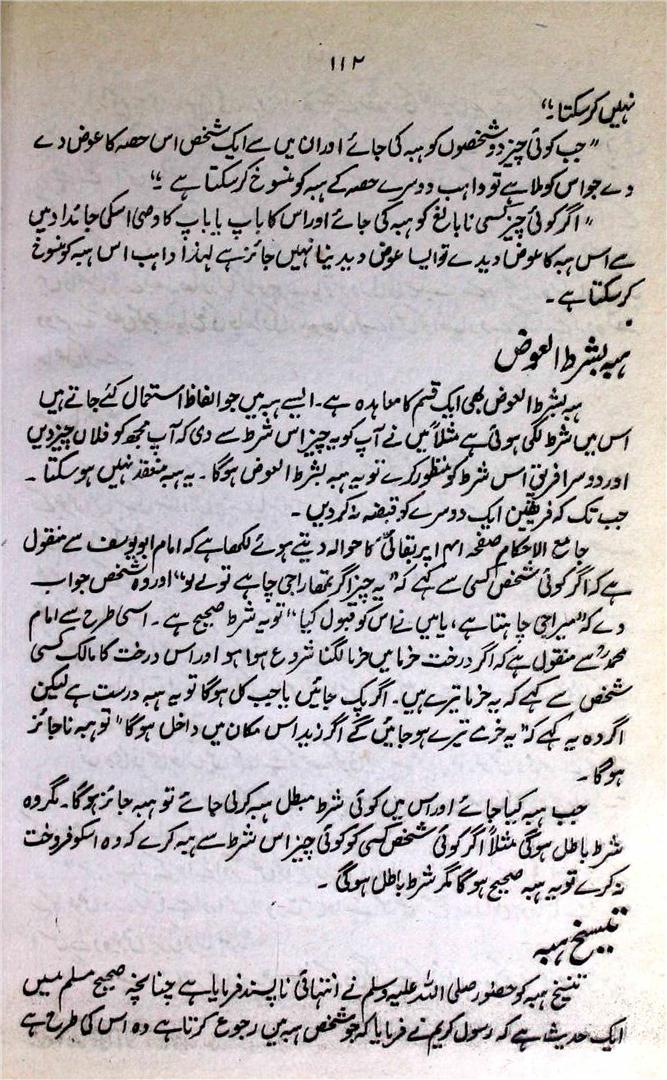 ۱۱۲
نہیں کر سکتا۔“
”جب کوئی چیز دو شخصوں کو ہبہ کی جائے اور ان میں سے ایک شخص اس حصہ کا عوض دے
دے جو اس کو ملا ہے تو واہب دوسرے حصہ کے ہبہ کو منسوخ کر سکتا ہے۔“
”اگر کوئی چیز کسی نابالغ کو ہبہ کی جائے اور اس کا باپ یا باپ کا وصی اسکی جائداد میں
سے اس ہبہ کا عوض دیدے تو ایسا عوض دیدینا نہیں جائز ہے لہذا واہب اس ہبہ کو منسوخ
کر سکتا ہے۔
ہبہ بشرط العوض
ہبہ بشرط العوض بھی ایک قسم کا معاہدہ ہے۔ ایسے ہبہ میں جو الفاظ استعمال کئے جاتے ہیں
اس میں شرط لگی ہوئی ہے مثلاً میں نے آپ کو یہ چیز اس شرط سے دی کہ آپ مجھ کو فلاں چیز دیں
اور دوسرا فریق اس شرط کو منظور کرے تو یہ ہبہ بشرط العوض ہوگا۔ یہ ہبہ منعقد نہیں ہو سکتا۔
جب تک کہ فریقین ایک دوسرے کو قبضہ نہ کر دیں۔
جامع الاحکام صفحہ ۱۳۱ پر بقائی کا حوالہ دیتے ہوئے لکھا ہے کہ امام ابو یوسف سے منقول
ہے کہ اگر کوئی شخص کسی سے کہے کہ ”یہ چیز اگر تمھارا جی چاہے تو لے لو“ اور وہ شخص جواب
دے کہ ”میرا جی چاہتا ہے، یا میں نے اس کو قبول کیا“ تو یہ شرط صحیح ہے۔ اسی طرح سے امام
محمدؒ سے منقول ہے کہ اگر درخت خرما میں خرما لگنا شروع ہوا ہو اور اس درخت کا مالک کسی
شخص سے کہے کہ یہ خرما تیرے ہیں۔ اگر پک جائیں یا جب کل ہوگا تو یہ ہبہ درست ہے لیکن
اگر وہ یہ کہے کہ ”یہ خرمے تیرے ہو جائیں گے اگر زید اس مکان میں داخل ہوگا“ تو ہبہ ناجائز
ہوگا۔
جب ہبہ کیا جائے اور اس میں کوئی شرط مبطل ہبہ کر لی جائے تو ہبہ جائز ہوگا۔ مگر وہ
شرط باطل ہوگی مثلاً اگر کوئی شخص کسی کو کوئی چیز اس شرط سے ہبہ کرے کہ وہ اسکو فروخت
نہ کرے تو یہ ہبہ صحیح ہوگا مگر شرط باطل ہوگی۔
تنسیخ ہبہ
تنسیخ ہبہ کو حضور صلی اللہ علیہ وسلم نے انتہائی ناپسند فرمایا ہے چنانچہ صحیح مسلم میں
ایک حدیث ہے کہ رسول کریم نے فرمایا کہ جو شخص ہبہ میں رجوع کرتا ہے وہ اس کی طرح ہے